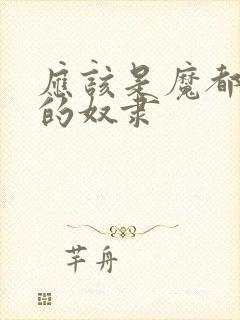 應該是魔都
的奴隶
芊舟